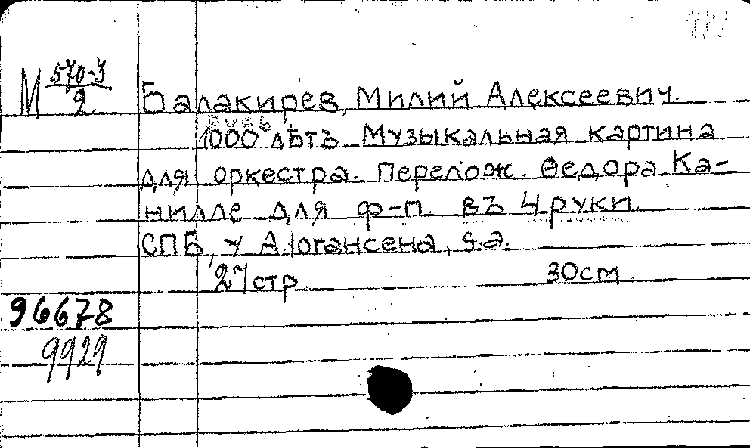 М 570-3/2
Балакирев, Милий Алексеевич.
1000 лѣтъ. Музыкальная картина
для оркестра. Перелож. Ѳедора Ка-
нилле для ф-п. въ 4 руки.
СПБ, у А. Іогансена, s.a.
27 стр 30 см.
96678
9929